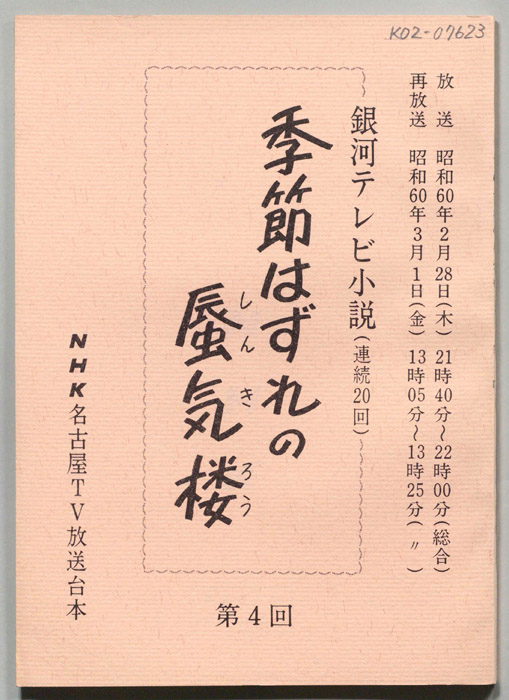 K02-07623
放送 昭和60年2月28日(木) 21時40分~22時00分(総合)
再放送 昭和60年3月1日(金) 13時05分~13時25分(〃)
銀河テレビ小説(連続20回)
季節はずれの
蜃気楼
しんきろう
第4回
NHK名古屋TV放送台本